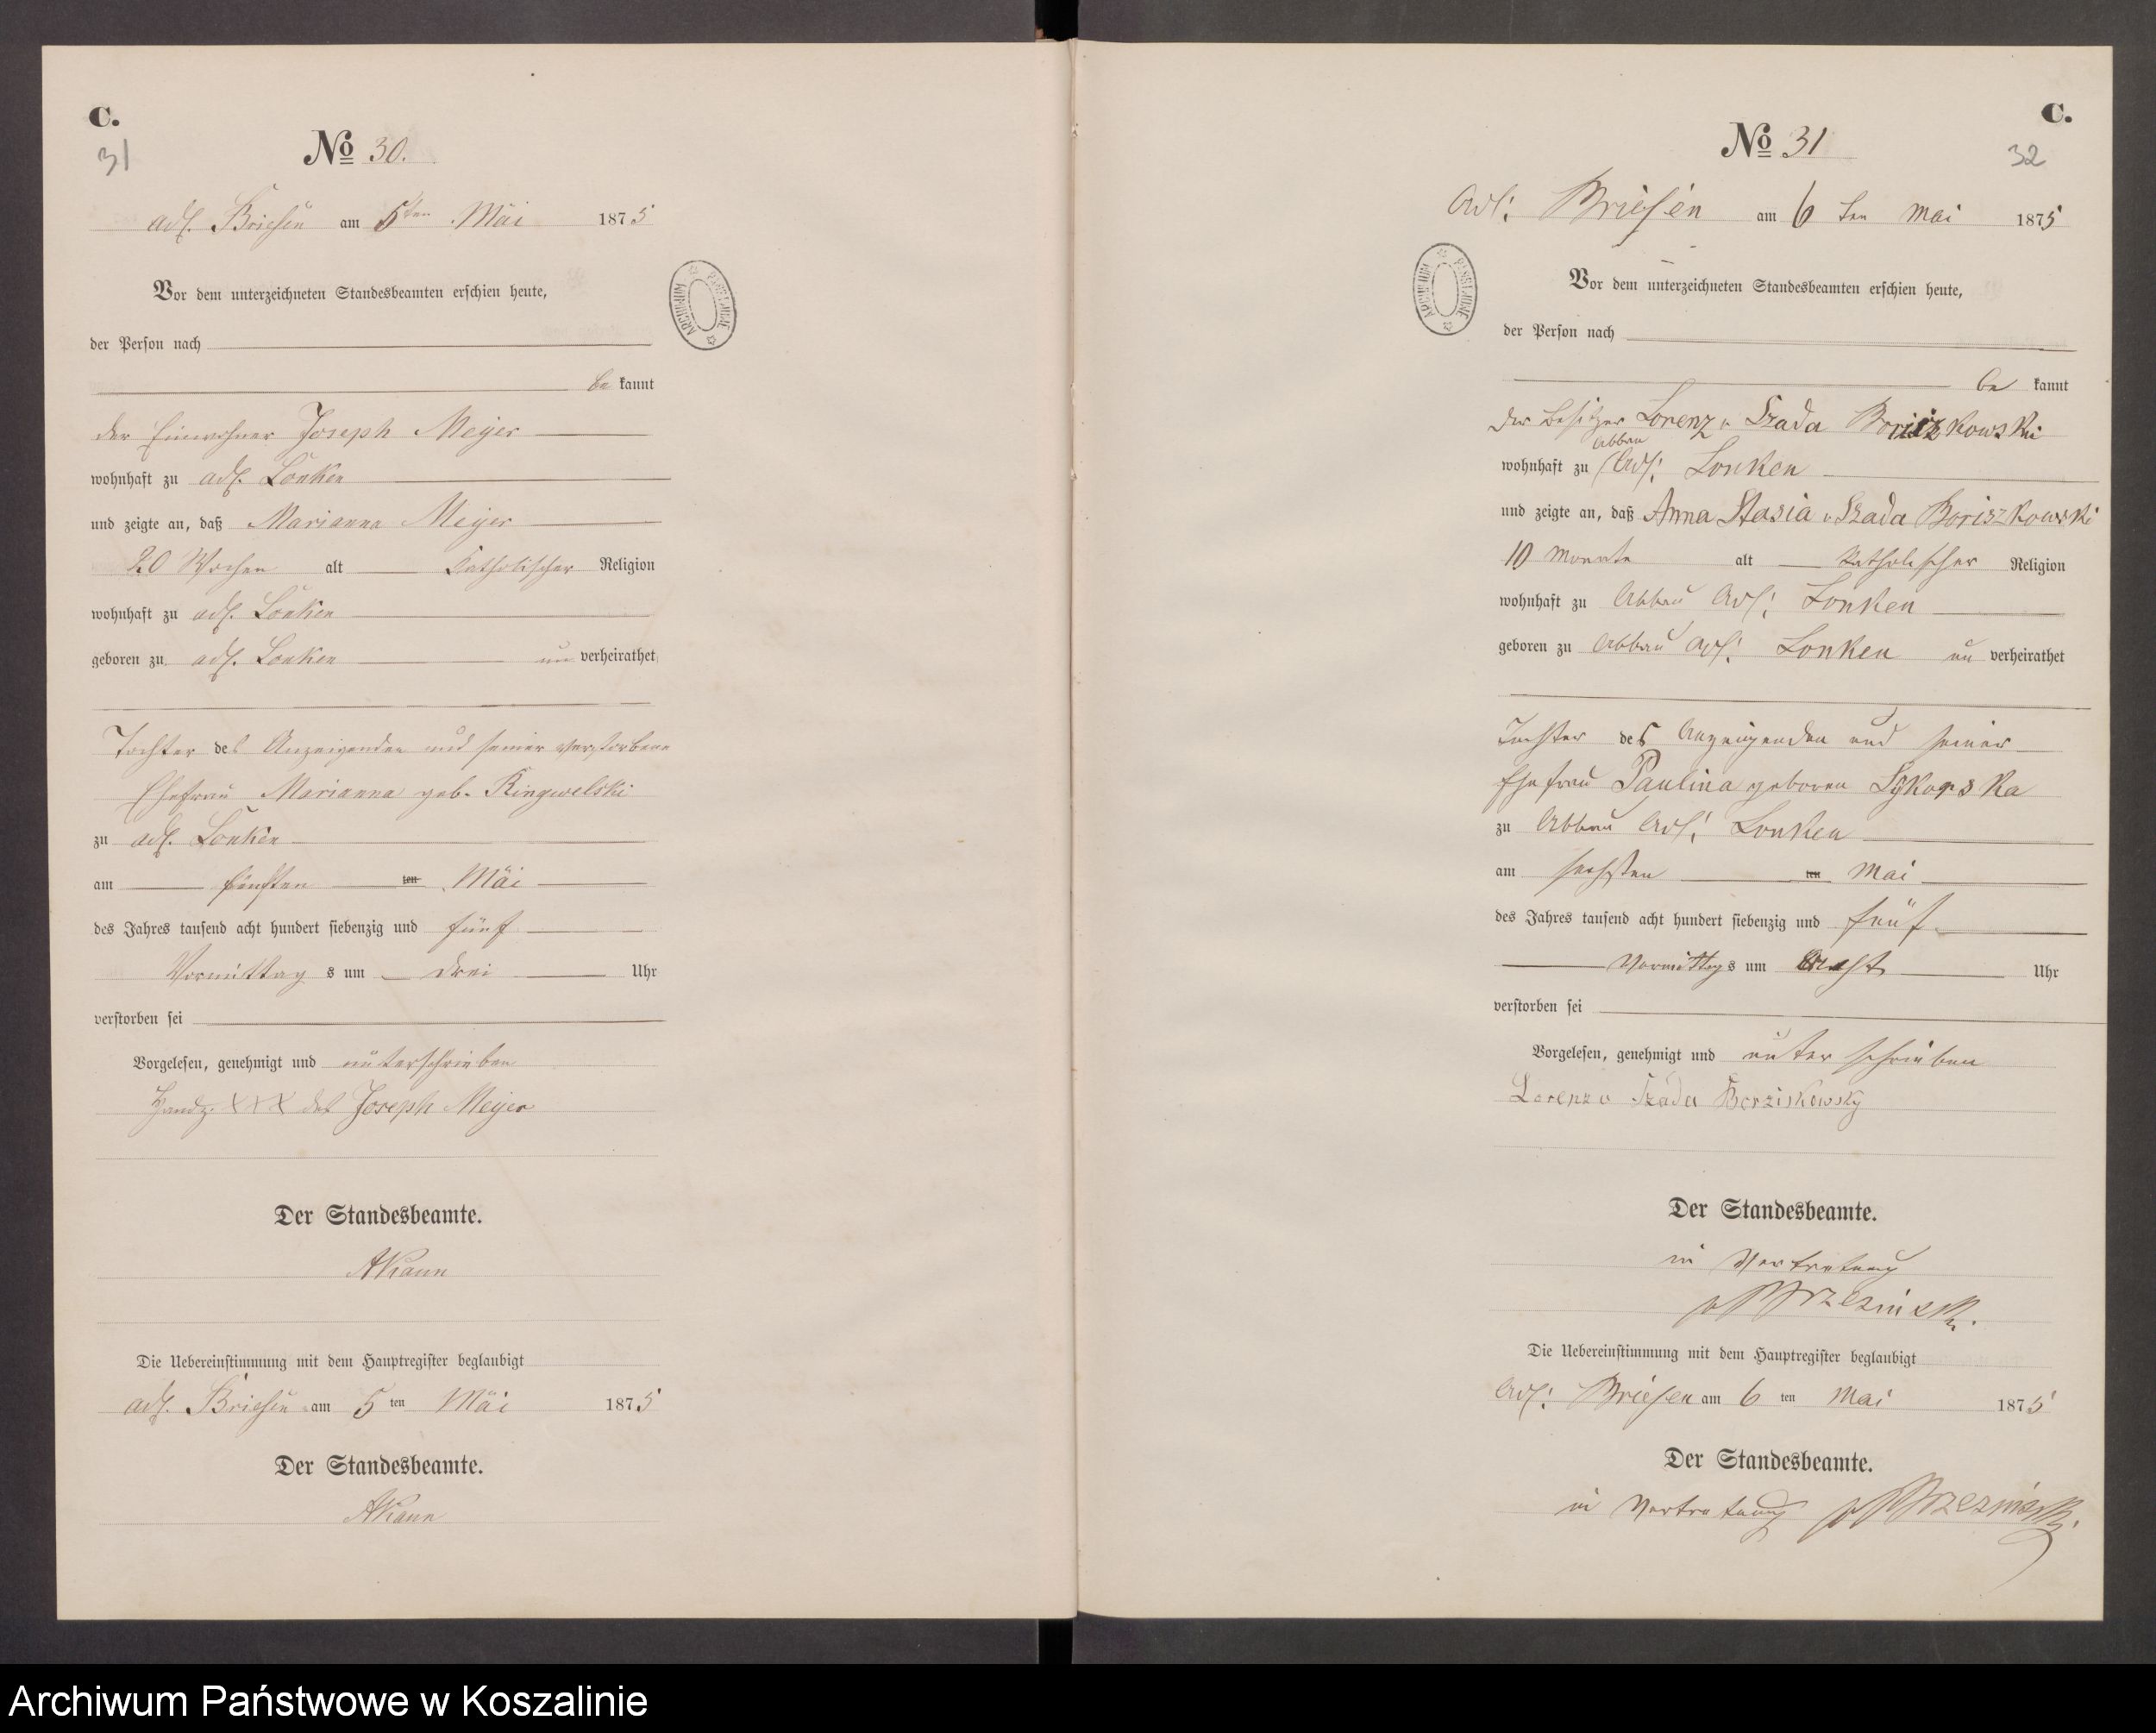 C.
31
No 30.
adl. Briesen am 5ten Mai 1875
Vor dem unterzeichneten Standesbeamten erschien heute,
der Person nach
be kannt
der Einwohner Joseph Meyer
wohnhaft zu adl. Lonken
und zeigte an, daß Marianna Meyer
20 Wochen alt katholischer Religion
wohnhaft zu adl. Lonken
geboren zu adl. Lonken un verheirathet
Tochter des Anzeigenden und seiner verstorbene
Ehefrau Marianna geb. Ringwelski
zu adl. Lonken
am fünften ten Mai
des Jahres tausend acht hundert siebenzig und fünf
Vormittag s um drei Uhr
verstorben sei
Vorgelesen, genehmigt und unterschrieben
Handz. XXX des Joseph Meyer
Der Standesbeamte.
Die Uebereinstimmung mit dem Hauptregister beglaubigt
adl. Briesen am 5 ten Mai 1875
Der Standesbeamte.
C.
32
No 31
Adl: Briesen am 6 ten Mai 1875
ARCHIWUM PAŃSTWOWE
Vor dem unterzeichneten Standesbeamten erschien heute,
der Person nach
be kannt
der Besitzer Lorenz v Szada Boriszkowski
Abbau
wohnhaft zu Adl: Lonken
und zeigte an, daß Anna Stasia v Szada Boriszkowski
10 Monate alt katholischer Religion
wohnhaft zu Abbau Adl: Lonken
geboren zu Abbau Adl: Lonken un verheirathet
Tochter des Anzeigenden und seiner
Ehefrau Paulina geboren Sykorska
zu Abbau Adl: Lonken
am sechsten ten Mai
des Jahres tausend acht hundert siebenzig und fünf
Vormittags um Uhr
verstorben sei
Vorgelesen, genehmigt und unter schrieben
Lorenz v Szada Borziskowsky
Der Standesbeamte.
in Vertretung
Die Uebereinstimmung mit dem Hauptregister beglaubigt
Adl: Briesen am 6 ten Mai 1875
Der Standesbeamte.
in Vertretung
Archiwum Państwowe w Koszalinie